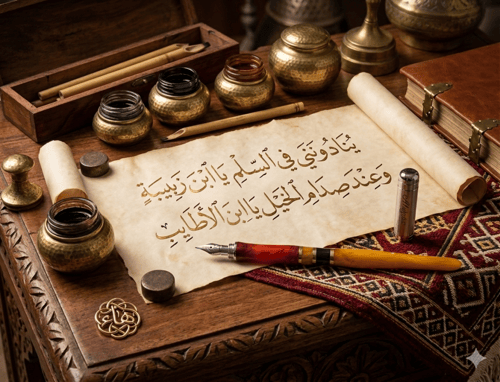 يُنَادُونَنِي فِي السِّلْمِ يَا ابْنَ زَبِيبَةٍ
وَعِنْدَ صِدَامِ الْخَيْلِ يَا ابْنَ الْأَطَايِبِ